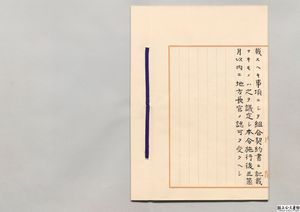 載スヘキ事項ニシテ組合契約書ニ記載
アルモノハ之ヲ議定シ本令施行後三箇
月以内ニ地方長官ノ認可ヲ受クヘシ
国立公文書館